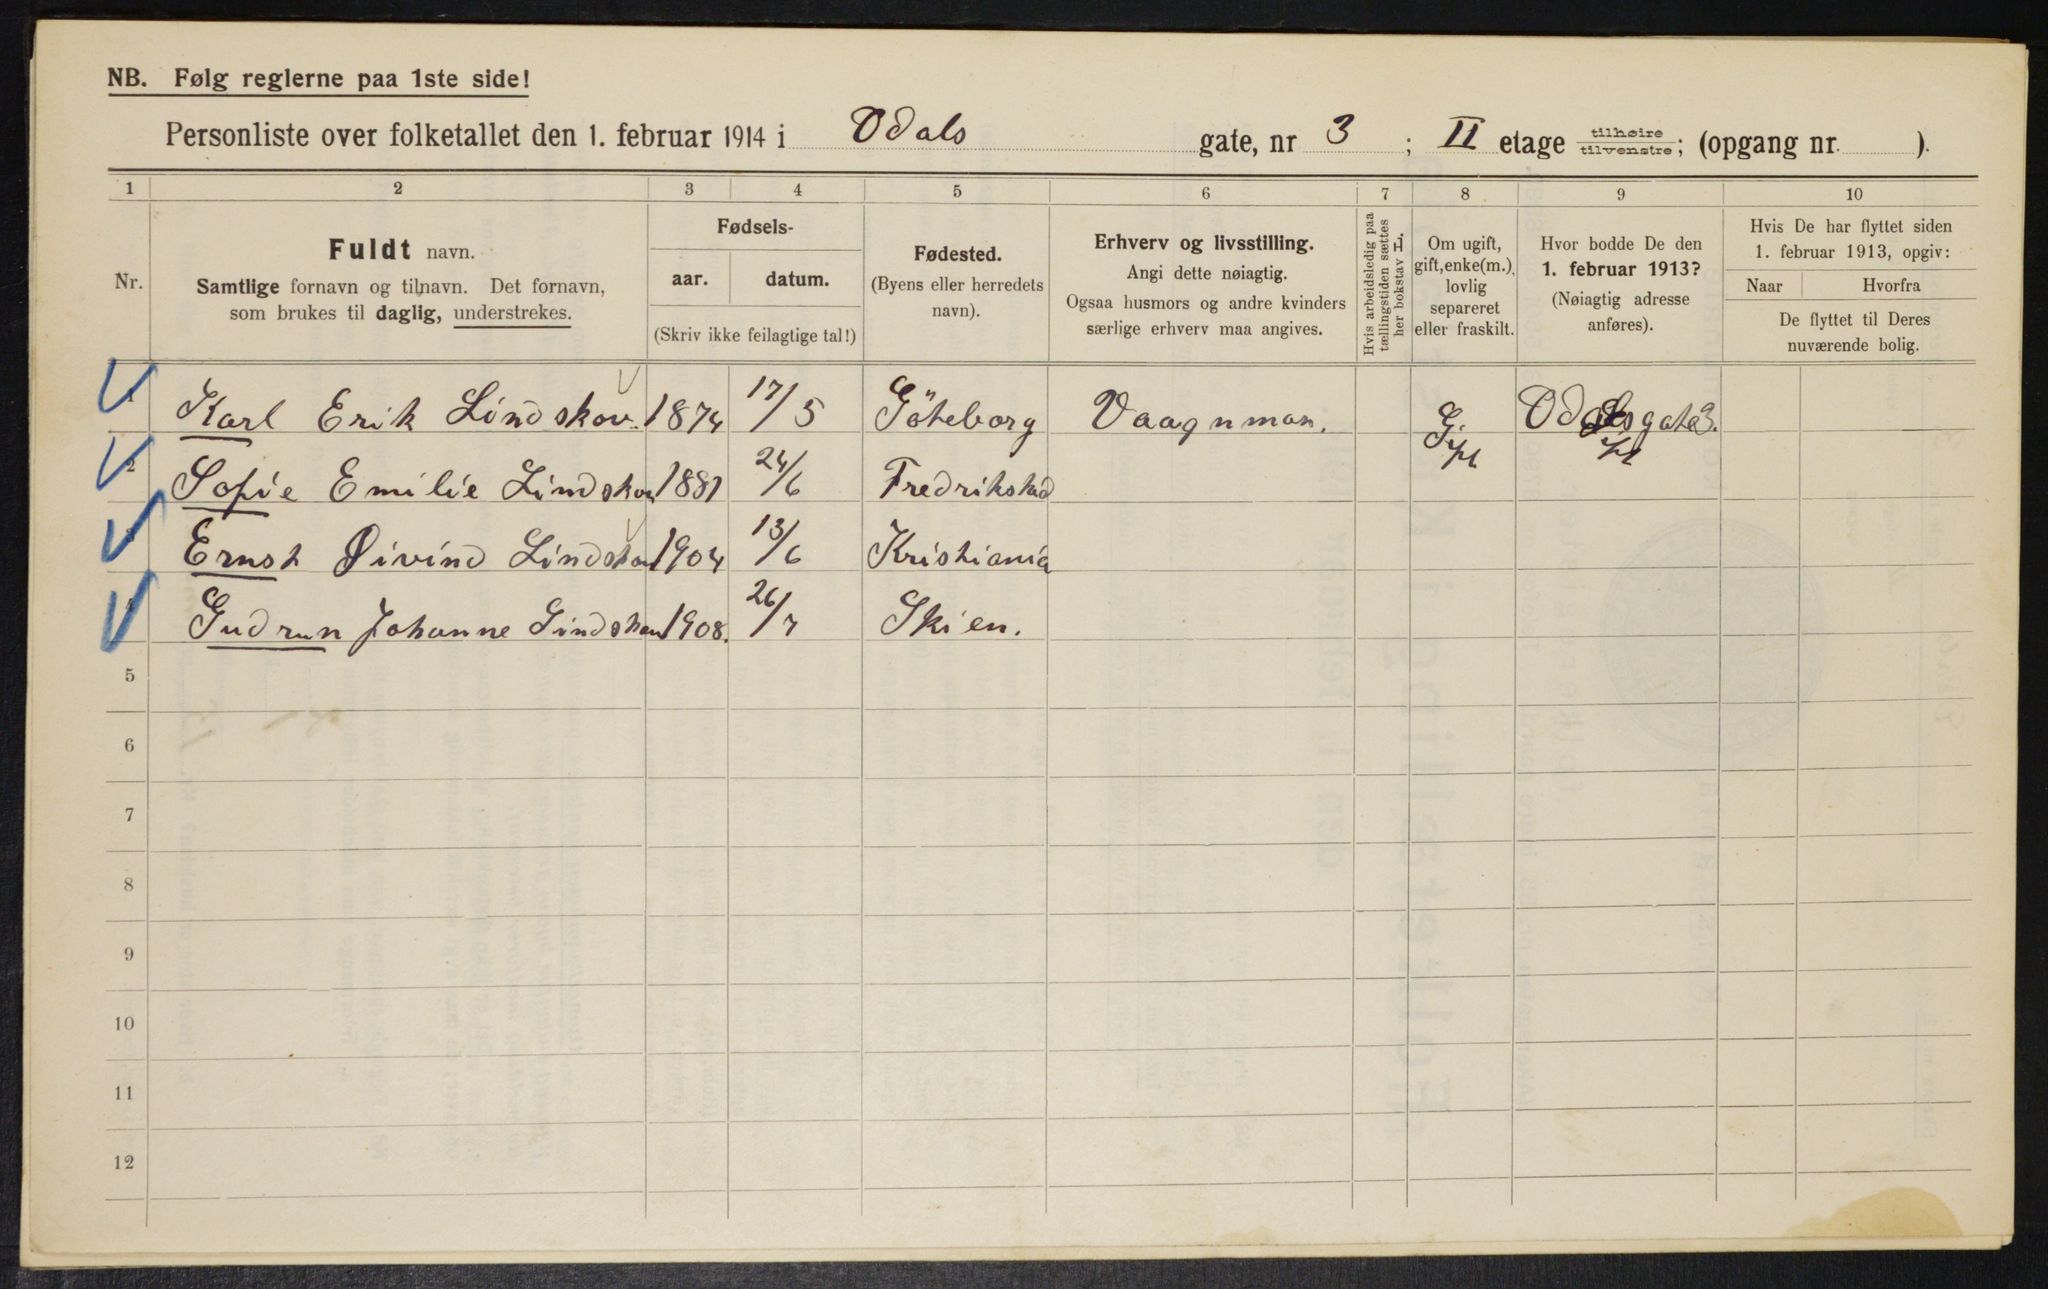 NB. Følg reglerne paa 1ste side!
Personliste over folketallet den 1. februar 1914 i Odals gate, nr 3 ; II etage tilhøire tilvenstre; (opgang nr. ).
1 2 3 4 5 6 7 8 9 10
Nr.
Fuldt navn.
Samtlige fornavn og tilnavn. Det fornavn,
som brukes til daglig, understrekes.
Fødsels-
aar. datum.
(Skriv ikke feilagtige tal!)
Fødested.
(Byens eller herredets
navn).
Erhverv og livsstilling.
Angi dette nøiagtig.
Ogsaa husmors og andre kvinders
særlige erhverv maa angives.
Hvis arbeidsledig paa
tællingstiden sættes
her bokstav L.
Om ugift,
gift, enke(m.),
lovlig
separeret
eller fraskilt.
Hvor bodde De den
1. februar 1913?
(Nøiagtig adresse
anføres).
Hvis De har flyttet siden
1. februar 1913, opgiv:
Naar Hvorfra
De flyttet til Deres
nuværende bolig.
1 Karl Erik Lindskov. 1874 17/5 Göteborg Vaagnman. Gipt Odalsgate 3.
2 Sofie Emilie Lindskov 1881 24/6 Fredrikstad
3 Ernst Øivind Lindskov 1904 13/6 Kristiania
4 Gudrun Johanne Lindskov 1908. 26/7 Skien.
5
6
7
8
9
10
11
12